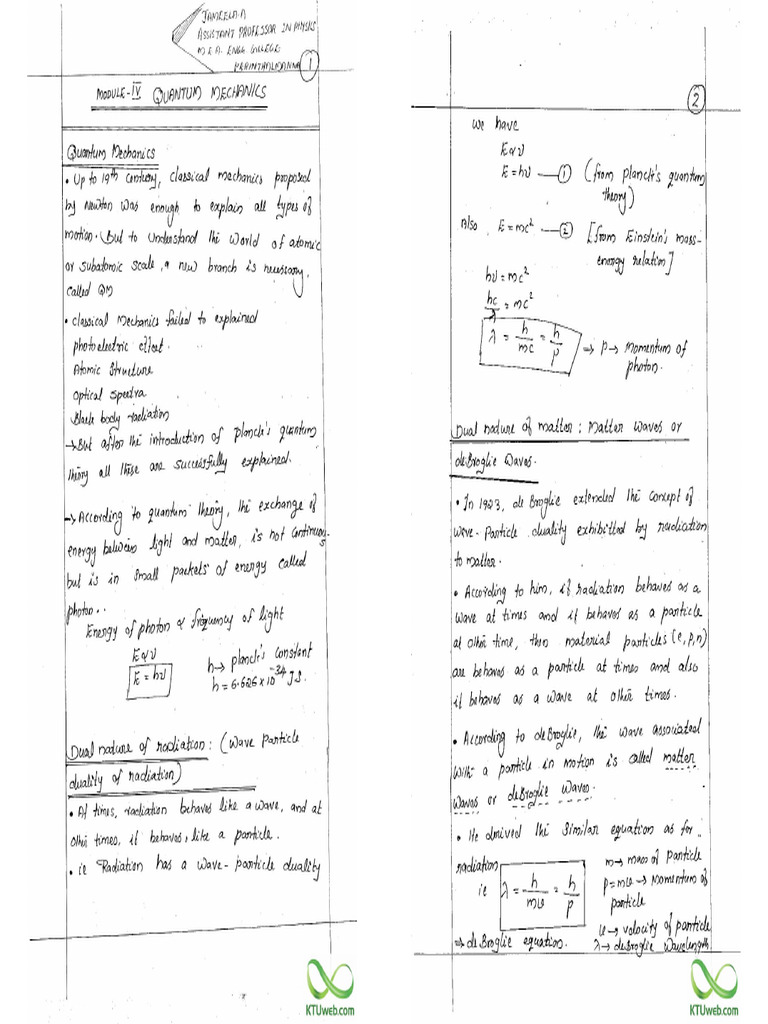 JAMEELA.A
ASSISTANT PROFESSOR IN PHYSICS
M.E.A. ENGG. COLLEGE
PERINTHALMANNA
1
MODULE-IV QUANTUM MECHANICS
Quantum Mechanics
• Up to 19th century, classical mechanics proposed
by newton was enough to explain all types of
motion. But to understand the world of atomic
or subatomic scale, a new branch is necessary.
called QM
• classical Mechanics failed to explained
photoelectric effect.
Atomic Structure
Optical Spectra
Black body radiation
→ But after the introduction of planck's quantum
theory all these are successfully explained.
→ According to quantum theory, the exchange of
energy between light and matter, is not continuous
but is in small packets of energy called
photon..
Energy of photon α frequency of light
E α ν
E = hν
h → planck's constant
h = 6.626 x 10^-34 JS.
Dual nature of radiation: (wave particle
duality of radiation)
• At times, radiation behaves like a wave, and at
other times, it behaves, like a particle.
• ie Radiation has a wave-particle duality
KTUweb.com
2
we have
E α ν
E = hν — 1 (from planck's quantum
theory)
Also E = mc² — 2 [from Einstein's mass-
energy relation]
hν = mc²
hc/λ = mc²
λ = h/mc = h/p ⇒ P → Momentum of
photon.
Dual nature of matter: Matter waves or
deBroglie Waves.
• In 1923, de Broglie extended the concept of
wave-Particle duality exhibitted by radiation
to matter.
• According to him, if radiation behaves as a
wave at times and it behaves as a particle
at other time, then material particles (e, p, n)
are behaves as a particle at times and also
it behaves as a wave at other times.
• According to deBroglie, the wave associated
with a particle in motion is called matter
waves or deBroglie waves.
• He derived the similar equation as for
radiation
ie λ = h/mv = h/p
m → mass of particle
p = mv → Momentum of
particle
v → velocity of particle
⇒ deBroglie equation. λ → deBroglie wavelength
KTUweb.com